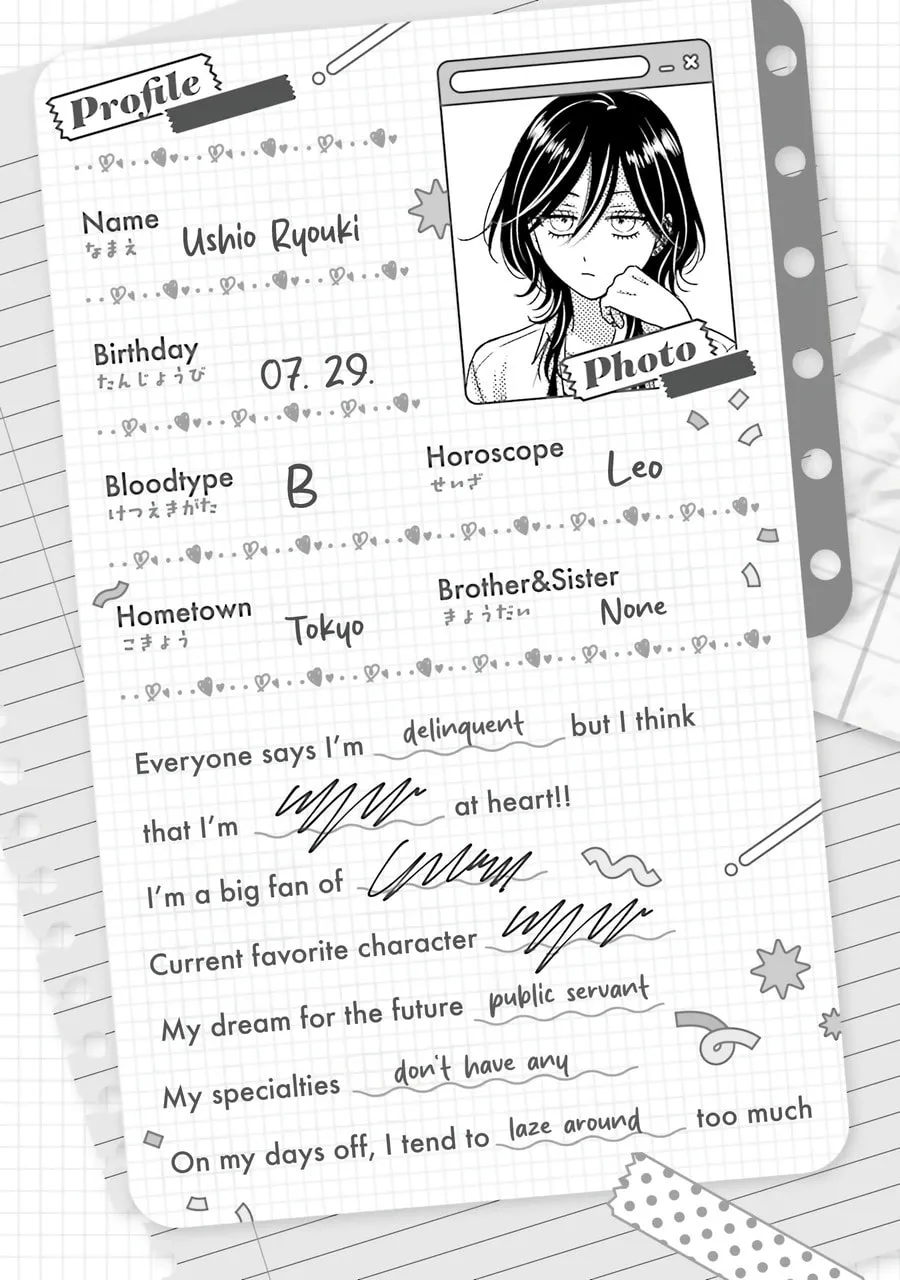 Profile
Name
なまえ
Ushio Ryouki
Birthday
たんじょうび
07. 29.
Photo
Bloodtype
けつえきがた
B
Horoscope
せいざ
Leo
Hometown
こきょう
Tokyo
Brother&Sister
きょうだい
None
Everyone says I'm delinquent but I think
that I'm at heart!!
I'm a big fan of
Current favorite character
My dream for the future public servant
My specialties don't have any
On my days off, I tend to laze around too much